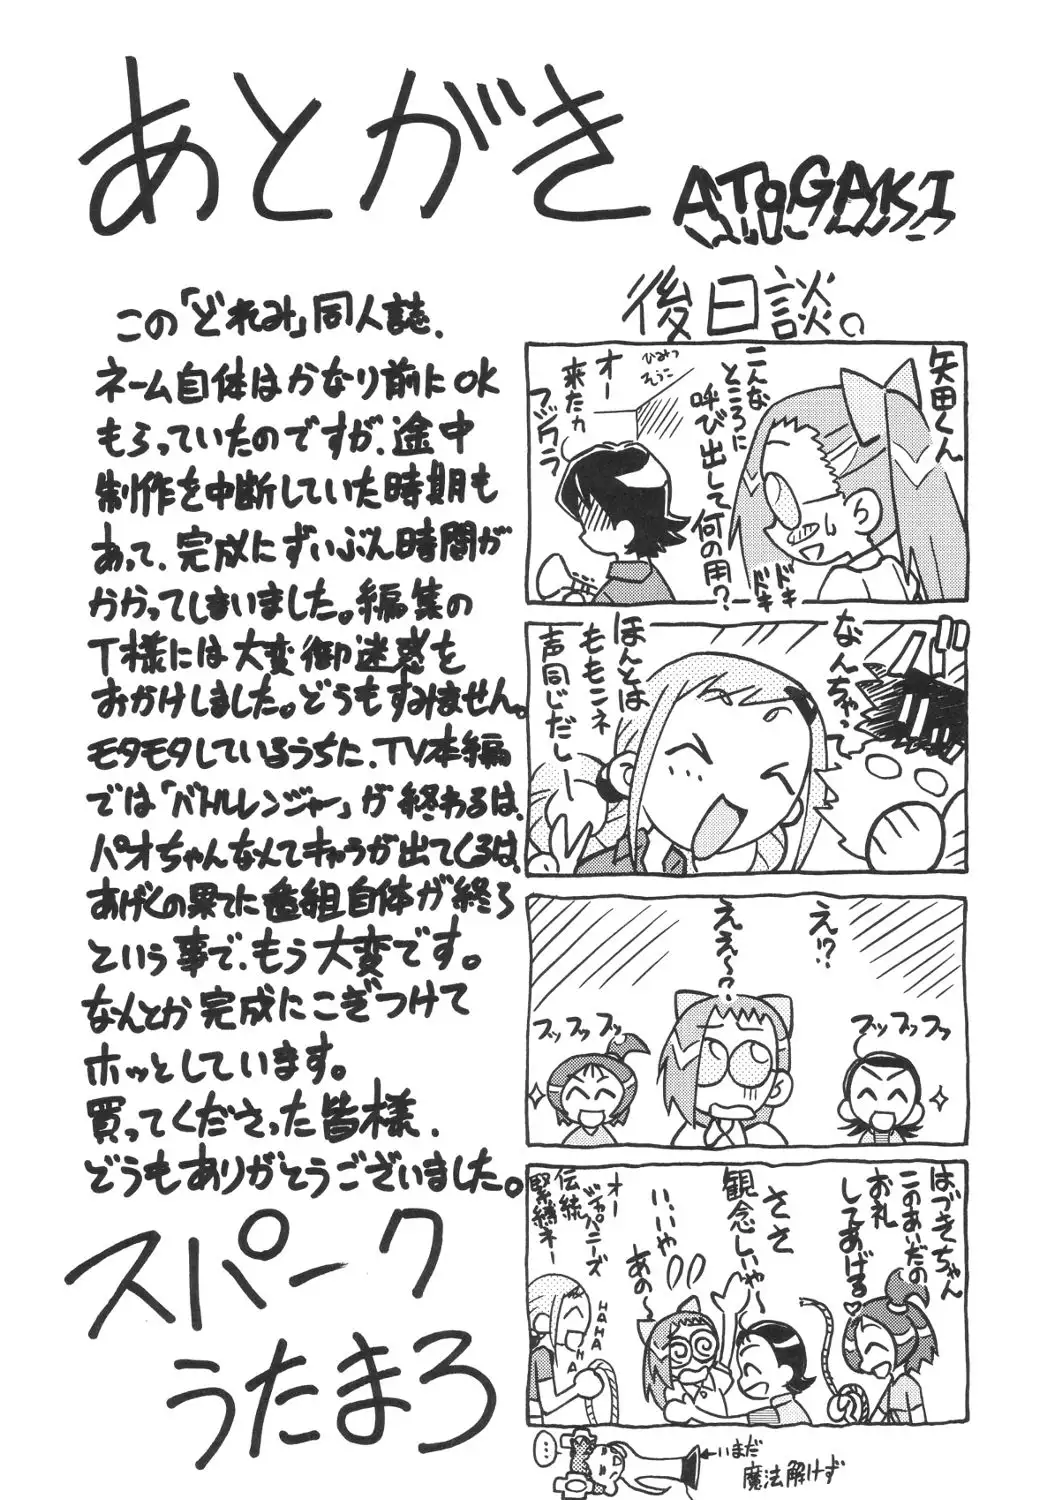 あとがき
ATOGAKI
この「どれみ」同人誌、
ネーム自体はかなり前にOK
もらっていたのですが、途中
制作を中断していた時期も
あって、完成にずいぶん時間が
かかってしまいました。編集の
T様には大変御迷惑を
おかけしました。どうもすみません。
モタモタしているうちに、TV本編
では「バトルレンジャー」が終わるは、
パオちゃんなんてキャラが出てくるは、
あげくの果てに番組自体が終る
という事で、もう大変です。
なんとか完成にこぎつけて
ホッとしています。
買ってくださった皆様、
どうもありがとうございました。
スパーク
うたまろ
後日談。
矢田くん
こんな
ところに
呼び出して何の用?
ドキ
ドキ
ひみつ
そうこ
オー
来たカ
なんちゃっ
ほんとは
ももこネ
声同じだしー
え!?
ええ〜っ?
プップップッ
はづきちゃん
このあいだの
お礼
してあげる
ささ
観念しぃや〜
いいや
あの〜
オー
ジャパニーズ
伝統
緊縛ネー
HAHA
HA
…
←いまだ
魔法解けず